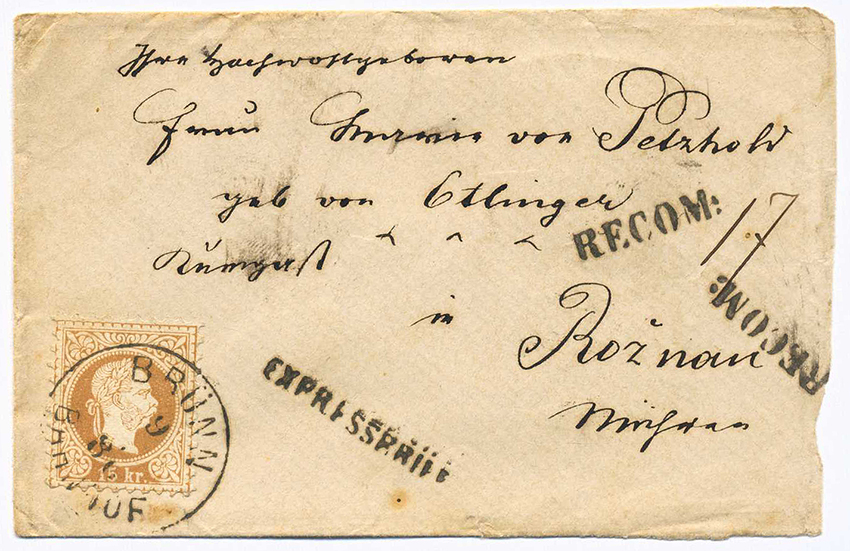 Ihre Hochwohlgeboren
Frau Marie von Petzhold
geb von Ettlinger
Kurgast
in
Rožnau
Mähren
RECOM:
17
RECOM:
EXPRESSBRIEF
BRÜNN
BAHNHOF
15 kr.